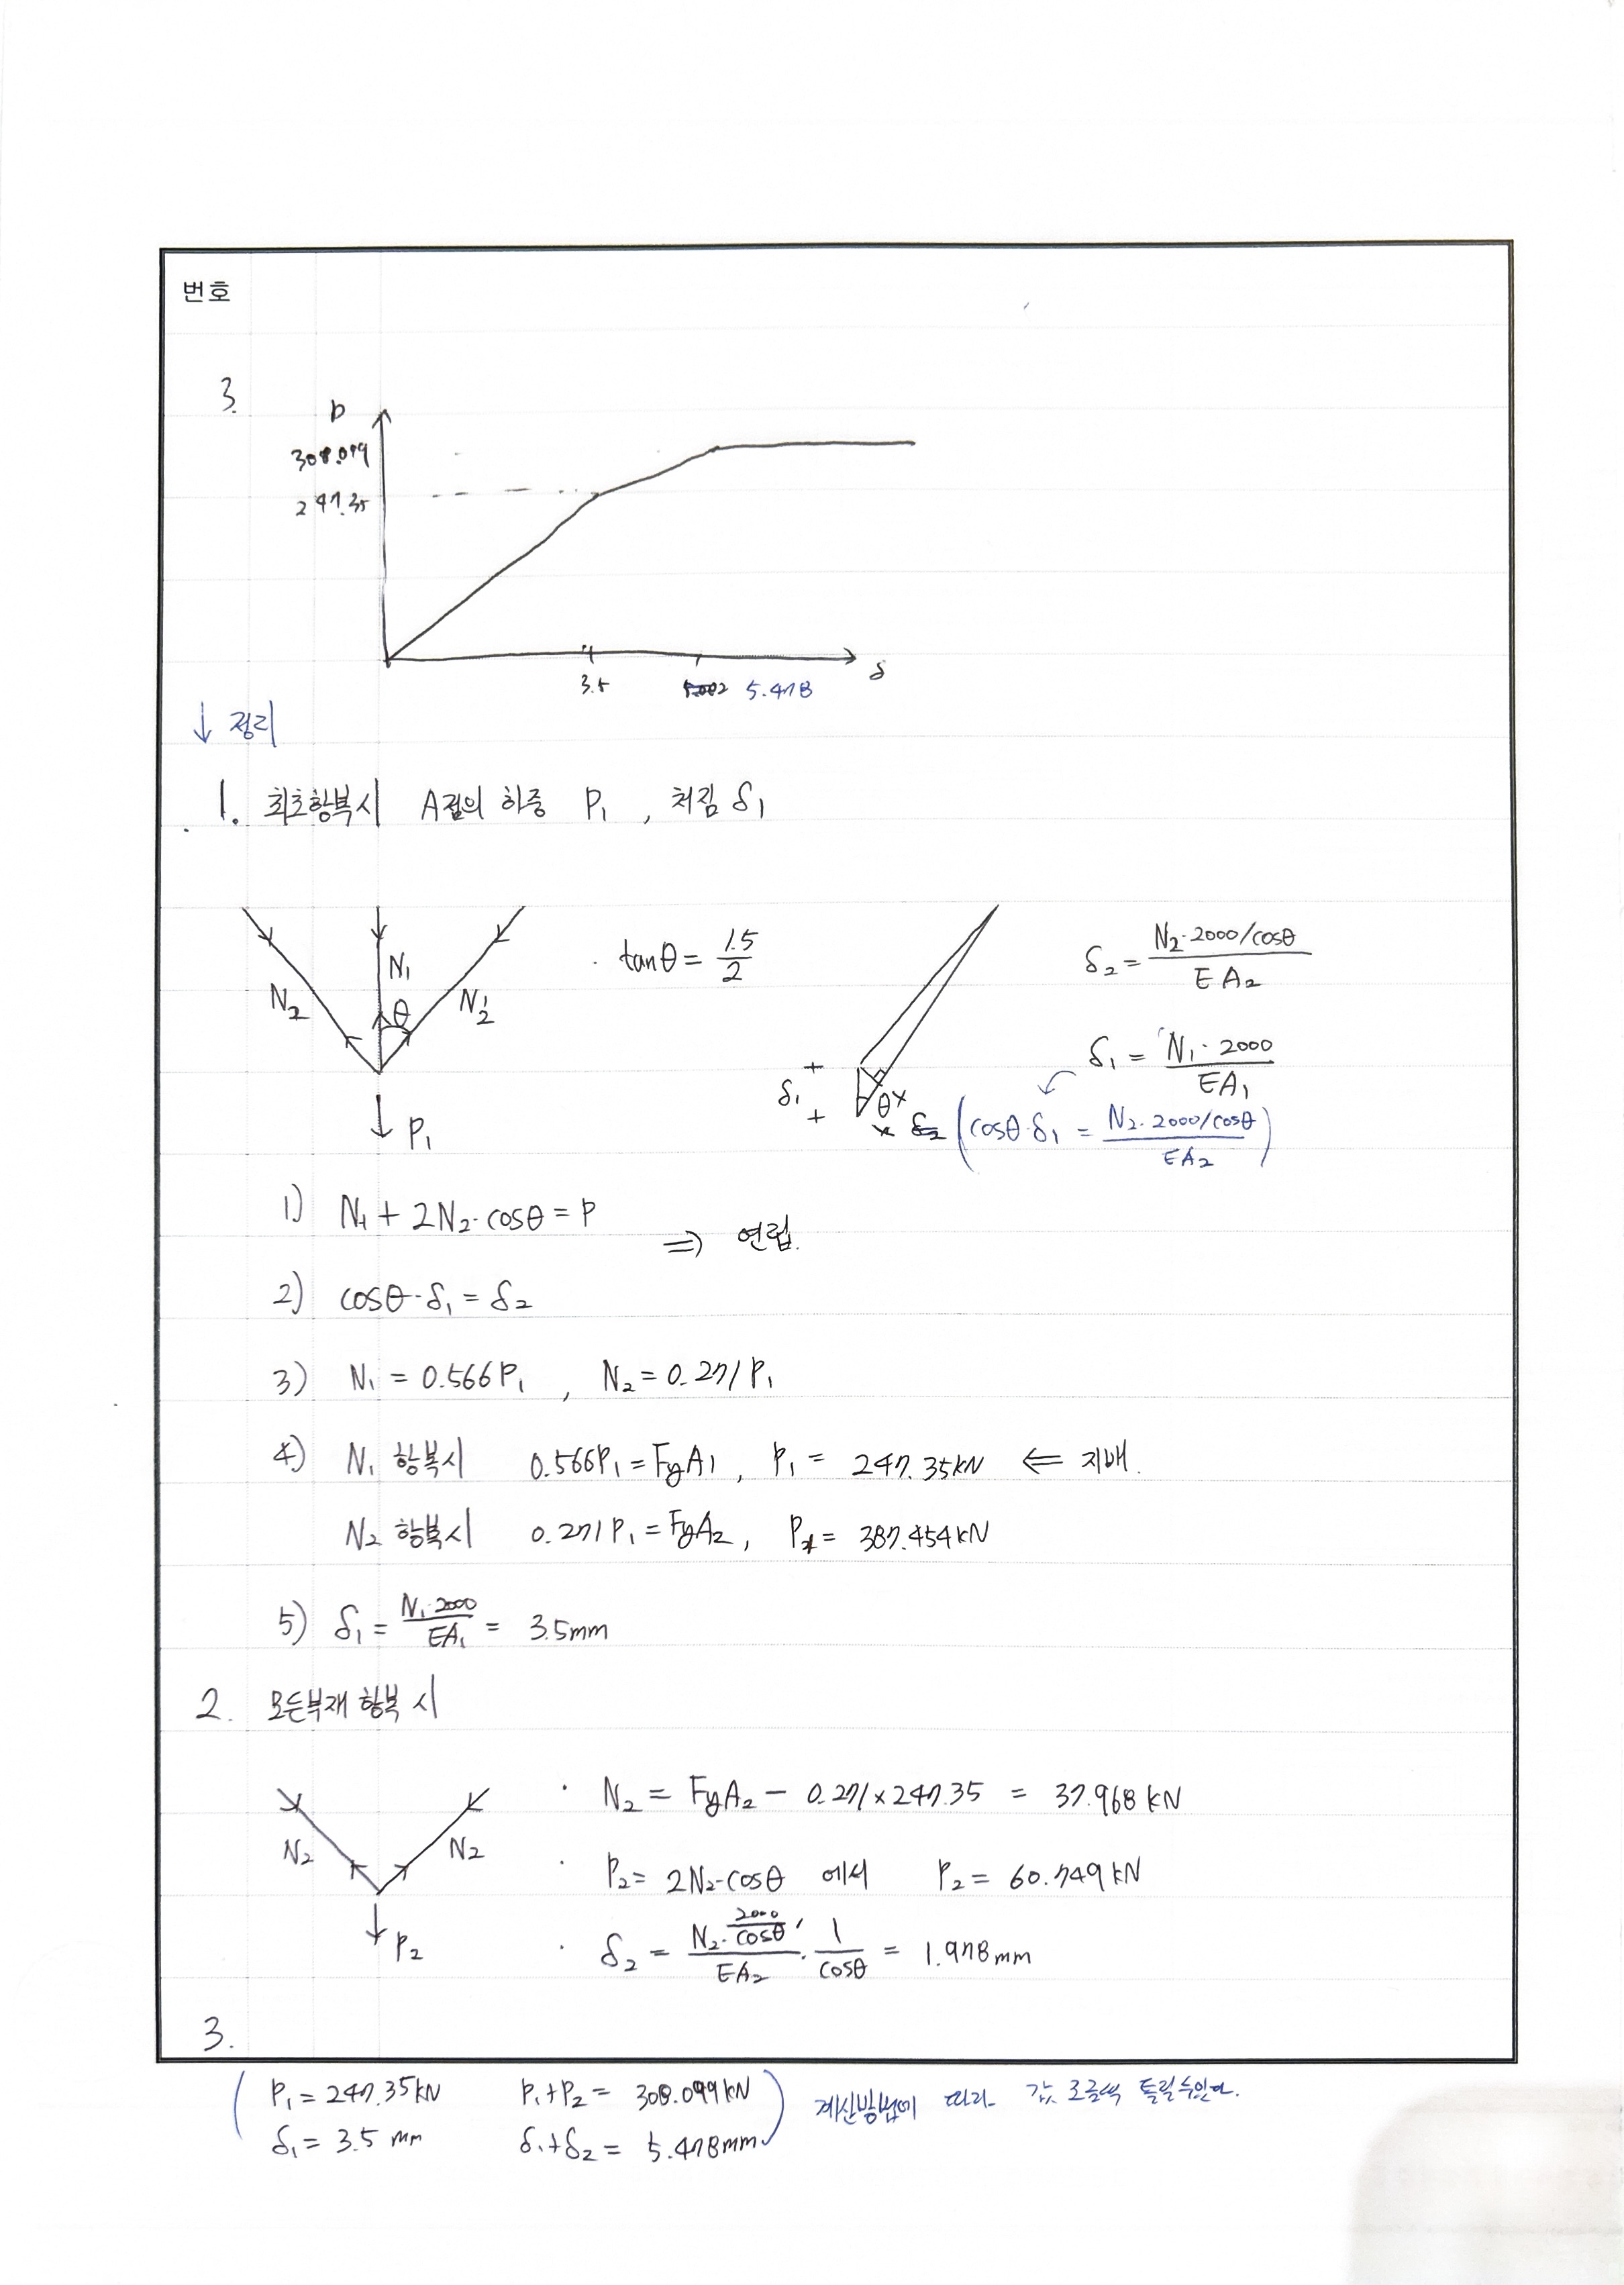 번호
3.
P
308.099
247.35
3.5 5.478 δ
↓ 정리
1. 최초항복시 A점의 하중 P₁ , 처짐 δ₁
N₂ N₁ θ N₂
P₁
· tanθ = 1.5/2
δ₁ θ
δ₂ = N₂·2000/cosθ / EA₂
δ₁ = N₁·2000 / EA₁
(cosθ·δ₁ = N₂·2000/cosθ / EA₂)
1) N₁ + 2N₂·cosθ = P
⇒ 연립.
2) cosθ·δ₁ = δ₂
3) N₁ = 0.566P₁ , N₂ = 0.271P₁
4) N₁ 항복시 0.566P₁ = FyA₁ , P₁ = 247.35kN ⇐ 지배.
N₂ 항복시 0.271P₁ = FyA₂ , P₁ = 387.454kN
5) δ₁ = N₁·2000 / EA₁ = 3.5mm
2. 모든부재 항복 시
N₂ N₂
P₂
· N₂ = FyA₂ - 0.271×247.35 = 37.968 kN
· P₂ = 2N₂·cosθ 에서 P₂ = 60.749kN
· δ₂ = N₂·2000/cosθ / EA₂ · 1/cosθ = 1.978mm
3.
( P₁ = 247.35kN P₁+P₂ = 308.099kN ) 계산방법에 따라 값 조금씩 틀릴수있다.
δ₁ = 3.5 mm δ₁+δ₂ = 5.478mm